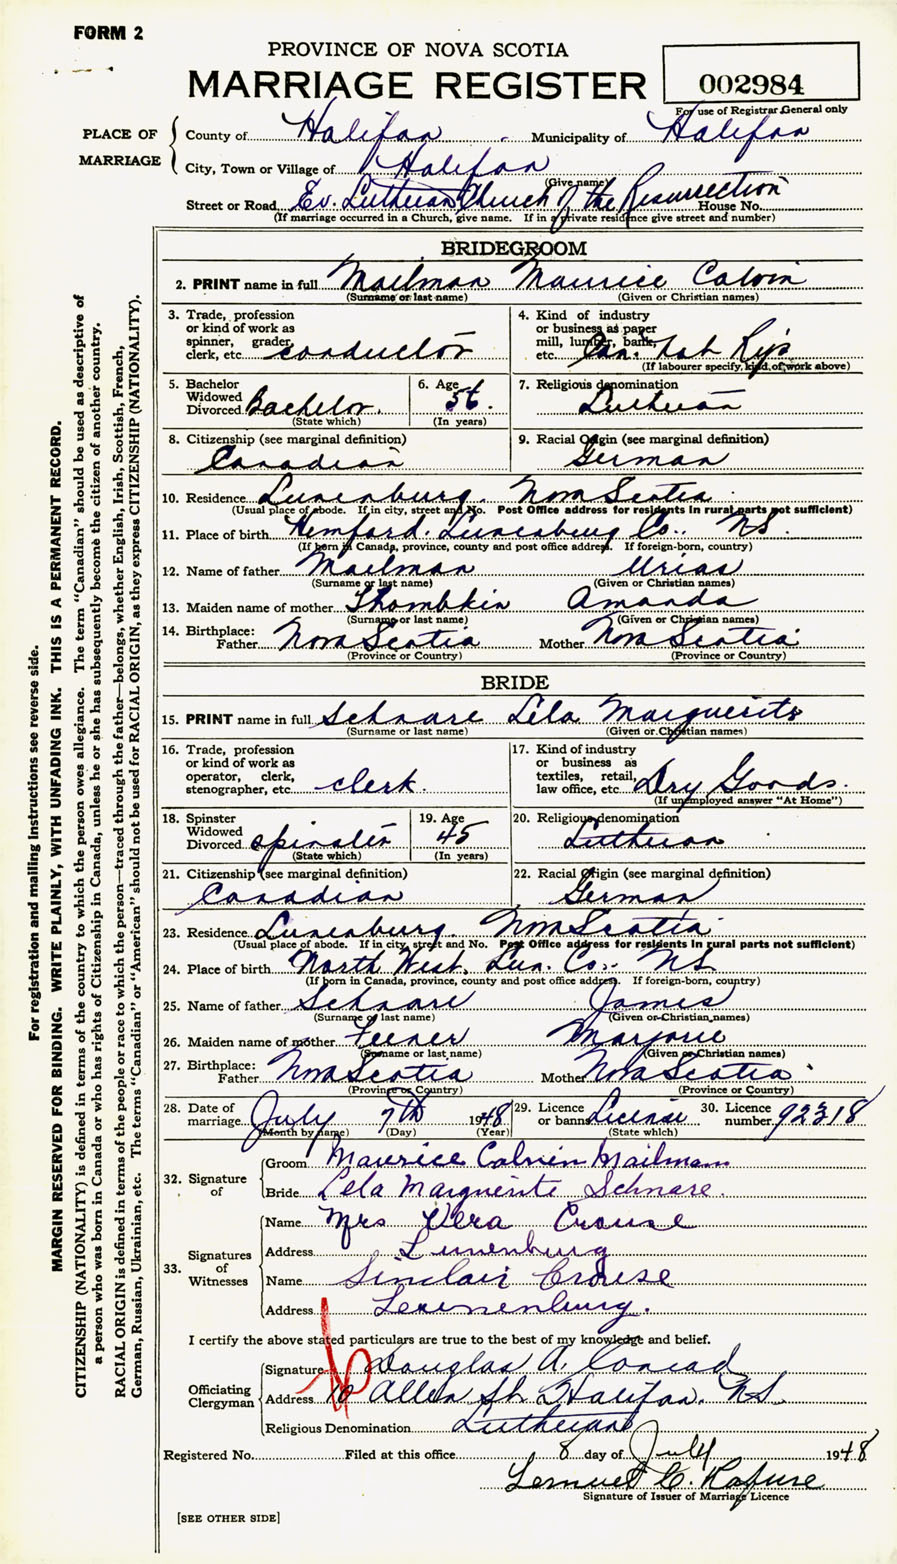 FORM 2
PROVINCE OF NOVA SCOTIA
MARRIAGE REGISTER
002984
For use of Registrar General only
PLACE OF MARRIAGE
County of Halifax Municipality of Halifax
City, Town or Village of Halifax
(Give name)
Street or Road Ev. Lutheran Church of the Resurrection House No.
(If marriage occurred in a Church, give name. If in a private residence give street and number)
BRIDEGROOM
2. PRINT name in full Mailman Maurice Calvin
(Surname or last name) (Given or Christian names)
3. Trade, profession or kind of work as spinner, grader, clerk, etc. conductor
4. Kind of industry or business as paper mill, lumber, bank, etc. Can. Nat Rys
(If labourer specify, kind of work above)
5. Bachelor Widowed Divorced Bachelor.
(State which)
6. Age 56.
(In years)
7. Religious denomination Lutheran
8. Citizenship (see marginal definition) Canadian
9. Racial Origin (see marginal definition) German
10. Residence Lunenburg. Nova Scotia
(Usual place of abode. If in city, street and No. Post Office address for residents in rural parts not sufficient)
11. Place of birth Hemford. Lunenburg Co.. NS.
(If born in Canada, province, county and post office address. If foreign-born, country)
12. Name of father Mailman Urias
(Surname or last name) (Given or Christian names)
13. Maiden name of mother Thombkin Amanda
(Surname or last name) (Given or Christian names)
14. Birthplace: Father Nova Scotia Mother Nova Scotia
(Province or Country) (Province or Country)
BRIDE
15. PRINT name in full Schnare Lela Marguerite
(Surname or last name) (Given or Christian names)
16. Trade, profession or kind of work as operator, clerk, stenographer, etc. clerk.
17. Kind of industry or business as textiles, retail, law office, etc. Dry Goods.
(If unemployed answer "At Home")
18. Spinster Widowed Divorced spinster
(State which)
19. Age 45
(In years)
20. Religious denomination Lutheran
21. Citizenship (see marginal definition) Canadian
22. Racial Origin (see marginal definition) German
23. Residence Lunenburg. Nova Scotia
(Usual place of abode. If in city, street and No. Post Office address for residents in rural parts not sufficient)
24. Place of birth North West, Lun. Co.. NS
(If born in Canada, province, county and post office address. If foreign-born, country)
25. Name of father Schnare James
(Surname of last name) (Given or Christian names)
26. Maiden name of mother Feener Marjorie
(Surname or last name) (Given or Christian names)
27. Birthplace: Father Nova Scotia Mother Nova Scotia
(Province or Country) (Province or Country)
28. Date of marriage July 7th 1948
(Month by name) (Day) (Year)
29. Licence or banns License
(State which)
30. Licence number 92318
32. Signature of
Groom Maurice Calvin Mailman
Bride Lela Marguerite Schnare.
33. Signatures of Witnesses
Name Mrs Vera Crouse
Address Lunenburg
Name Sinclair Crouse
Address Lunenburg.
I certify the above stated particulars are true to the best of my knowledge and belief.
Officiating Clergyman
Signature Douglas A. Conrad
Address 10 Allen St. Halifax. NS.
Religious Denomination Lutheran
Registered No. Filed at this office 8 day of July 1948
Lemuel C. Rafuse
Signature of Issuer of Marriage Licence
[SEE OTHER SIDE]
For registration and mailing instructions see reverse side.
MARGIN RESERVED FOR BINDING. WRITE PLAINLY, WITH UNFADING INK. THIS IS A PERMANENT RECORD.
CITIZENSHIP (NATIONALITY) is defined in terms of the country to which the person owes allegiance. The term "Canadian" should be used as descriptive of
a person who was born in Canada or who has rights of Citizenship in Canada, unless he or she has subsequently become the citizen of another country.
RACIAL ORIGIN is defined in terms of the people or race to which the person—traced through the father—belongs, whether English, Irish, Scottish, French,
German, Russian, Ukrainian, etc. The terms "Canadian" or "American" should not be used for RACIAL ORIGIN, as they express CITIZENSHIP (NATIONALITY).